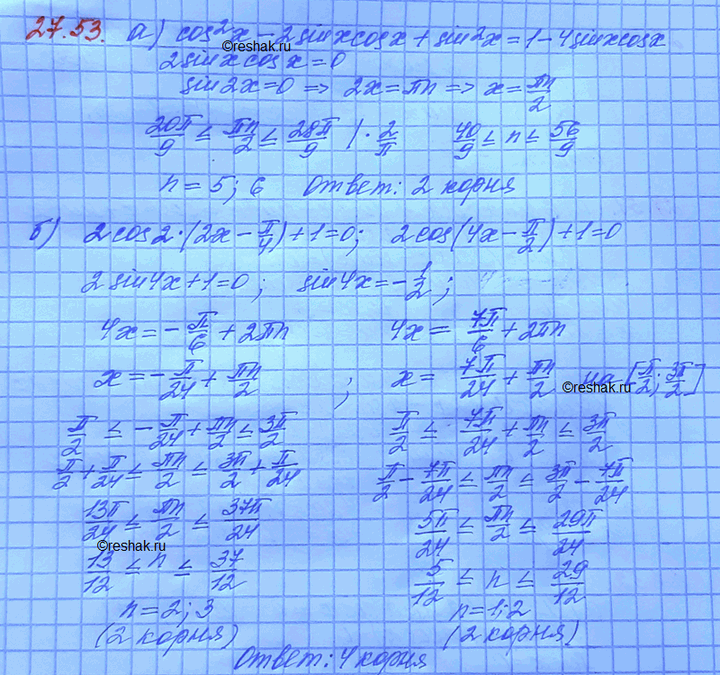 27.53. а) cos²x - 2sinxcosx + sin²x = 1 - 4sinxcosx
©reshak.ru
2sinxcosx = 0
sin2x = 0 => 2x = πn => x = πn/2
20π/9 ≤ πn/2 ≤ 28π/9 | · 2/π    40/9 ≤ n ≤ 56/9
n = 5; 6    Ответ: 2 корня
б) 2cos2·(2x - π/4) + 1 = 0;    2cos(4x - π/2) + 1 = 0
2sin4x + 1 = 0;    sin4x = -1/2;
4x = -π/6 + 2πn    4x = 7π/6 + 2πn
x = -π/24 + πn/2;    x = 7π/24 + πn/2    на [π/2; 3π/2]
©reshak.ru
π/2 ≤ -π/24 + πn/2 ≤ 3π/2    π/2 ≤ 7π/24 + πn/2 ≤ 3π/2
π/2 + π/24 ≤ πn/2 ≤ 3π/2 + π/24    π/2 - 7π/24 ≤ πn/2 ≤ 3π/2 - 7π/24
13π/24 ≤ πn/2 ≤ 37π/24    5π/24 ≤ πn/2 ≤ 29π/24
©reshak.ru
13/12 ≤ n ≤ 37/12    5/12 ≤ n ≤ 29/12
n = 2; 3    n = 1; 2
(2 корня)    (2 корня)
Ответ: 4 корня